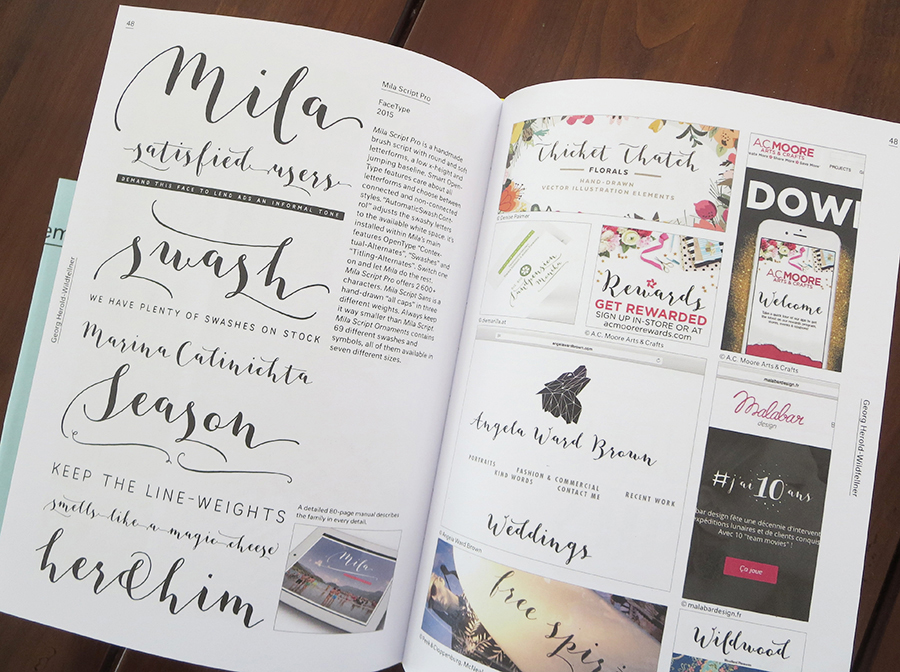 48
Mila
satisfied users
DEMAND THIS FACE TO LEND ADS AN INFORMAL TONE
swash
WE HAVE PLENTY OF SWASHES ON STOCK
Marina Catinichta
Season
KEEP THE LINE-WEIGHTS
smells like a magic cheese
her@him
Georg Herold-Wildfellner
em
Mila Script Pro
FaceType
2015
Mila Script Pro is a handmade
brush script with round and soft
letterforms, a low x-height and
jumping baseline. Smart Open-
Type features care about all
letterforms and choose between
connected and non-connected
styles. "AutomaticSwashCont-
rol" adjusts the swashy letters
to the available white space. It's
installed within Mila's main
features OpenType "Contex-
tual-Alternates", "Swashes" and
"Titling-Alternates". Switch one
on and let Mila do the rest.
Mila Script Pro offers 2600+
characters. Mila Script Sans is a
hand-drawn "all caps" in three
different weights. Always keep
it way smaller than Mila Script.
Mila Script Ornaments contains
69 different swashes and
symbols, all of them available in
seven different sizes.
A detailed 80-page manual describes
the family in every detail.
Mila
48
Thicket Thatch
FLORALS
HAND-DRAWN
VECTOR ILLUSTRATION ELEMENTS
© Denise Palmer
Landpension
Monila
Rewards
GET REWARDED
SIGN UP IN-STORE OR AT
acmoorerewards.com
© A.C. Moore Arts & Crafts
A.C.MOORE
ARTS & CRAFTS
PROJECTS
DOWN
A.C.MOORE
ARTS & CRAFTS
Welcome
© A.C. Moore Arts & Crafts
angelawardbrown.com
Angela Ward Brown
PORTRAITS
FASHION & COMMERCIAL
KIND WORDS
CONTACT ME
RECENT WORK
Weddings
© Angela Ward Brown
malabardesign.fr
Malabar
design
#j'ai 10 ans
bar design fête une décennie d'intervent
expéditions lunaires et de clients conquis
Avec 10 "team movies" !
Ça joue
© malabardesign.fr
Georg Herold-Wildfellner
free spiri
Wildwood